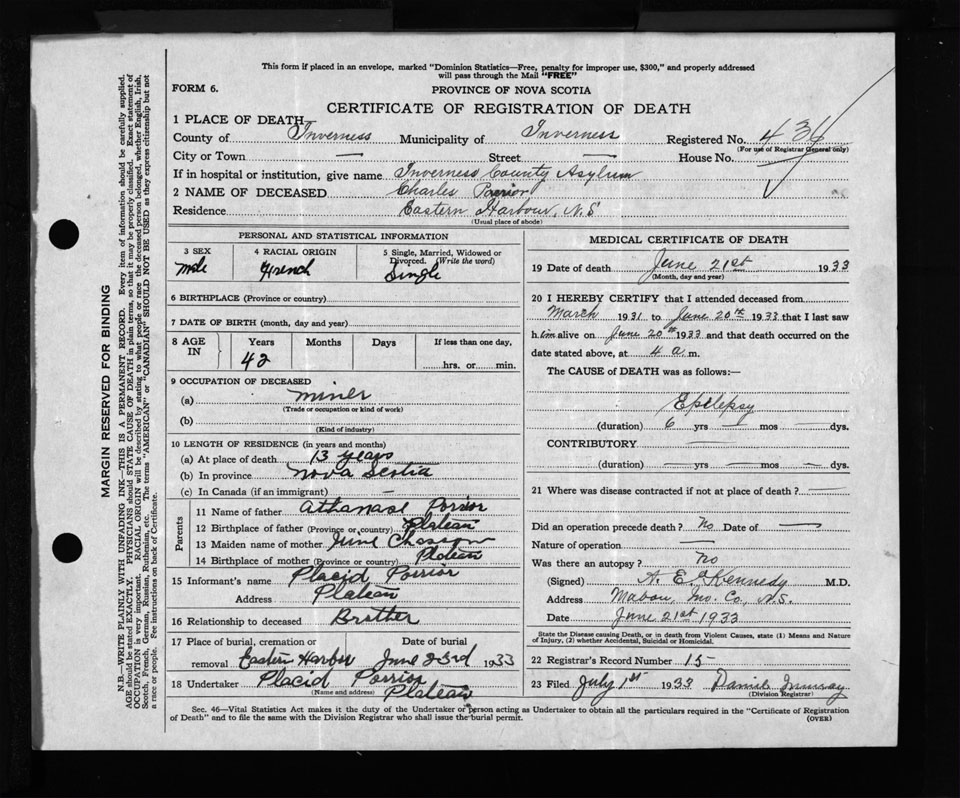 This form if placed in an envelope, marked "Dominion Statistics—Free, penalty for improper use, $300," and properly addressed
will pass through the Mail "FREE"
FORM 6.
PROVINCE OF NOVA SCOTIA
CERTIFICATE OF REGISTRATION OF DEATH
1 PLACE OF DEATH
County of Inverness Municipality of Inverness Registered No. 434
(For use of Registrar General only)
City or Town — Street — House No.
If in hospital or institution, give name Inverness County Asylum
2 NAME OF DECEASED Charles Porrior
Residence Eastern Harbour, N.S
(Usual place of abode)
PERSONAL AND STATISTICAL INFORMATION
3 SEX 4 RACIAL ORIGIN 5 Single, Married, Widowed or
Divorced. (Write the word)
Male French Single
6 BIRTHPLACE (Province or country)
7 DATE OF BIRTH (month, day and year)
8 AGE IN Years Months Days If less than one day,
42 hrs. or min.
9 OCCUPATION OF DECEASED
(a) miner
(Trade or occupation or kind of work)
(b)
(Kind of industry)
10 LENGTH OF RESIDENCE (in years and months)
(a) At place of death 13 years
(b) In province Nova Scotia
(c) In Canada (if an immigrant) —
Parents
11 Name of father Athanase Porrior
12 Birthplace of father (Province or country) Plateau
13 Maiden name of mother
14 Birthplace of mother (Province or country) Plateau
15 Informant's name Placid Porrior
Address Plateau
16 Relationship to deceased Brother
17 Place of burial, cremation or Date of burial
removal Eastern Harbor June 23rd 1933
18 Undertaker Placid Porrior
(Name and address) Plateau
MEDICAL CERTIFICATE OF DEATH
19 Date of death June 21st 1933
(Month, day and year)
20 I HEREBY CERTIFY that I attended deceased from
March 1931 to June 20th 1933 that I last saw
him alive on June 20th 1933 and that death occurred on the
date stated above, at 4 a m.
The CAUSE of DEATH was as follows:—
Epilepsy
(duration) 6 yrs — mos — dys.
CONTRIBUTORY —
(duration) — yrs — mos — dys.
21 Where was disease contracted if not at place of death? —
Did an operation precede death? No Date of —
Nature of operation —
Was there an autopsy? No
(Signed) A. E. Kennedy M.D.
Address Mabou, Inv. Co., N.S.
Date June 21st 1933
State the Disease causing Death, or in death from Violent Causes, state (1) Means and Nature
of Injury, (2) whether Accidental, Suicidal or Homicidal.
22 Registrar's Record Number 15
23 Filed July 1st 1933 Daniel Murray
(Division Registrar)
Sec. 46—Vital Statistics Act makes it the duty of the Undertaker or person acting as Undertaker to obtain all the particulars required in the "Certificate of Registration
of Death" and to file the same with the Division Registrar who shall issue the burial permit. (OVER)
MARGIN RESERVED FOR BINDING
N.B.—WRITE PLAINLY WITH UNFADING INK—THIS IS A PERMANENT RECORD. Every item of information should be carefully supplied.
AGE should be stated EXACTLY. PHYSICIANS should STATE CAUSE OF DEATH in plain terms, so that it may be properly classified. Exact statement of
OCCUPATION is very important. RACIAL ORIGIN will be described by stating to what people or race the deceased person belonged, whether English, Irish,
Scotch, French, German, Russian, Ruthenian, etc. The terms "AMERICAN" or "CANADIAN" SHOULD NOT BE USED as they express citizenship but not
a race or people. See instructions on back of Certificate.